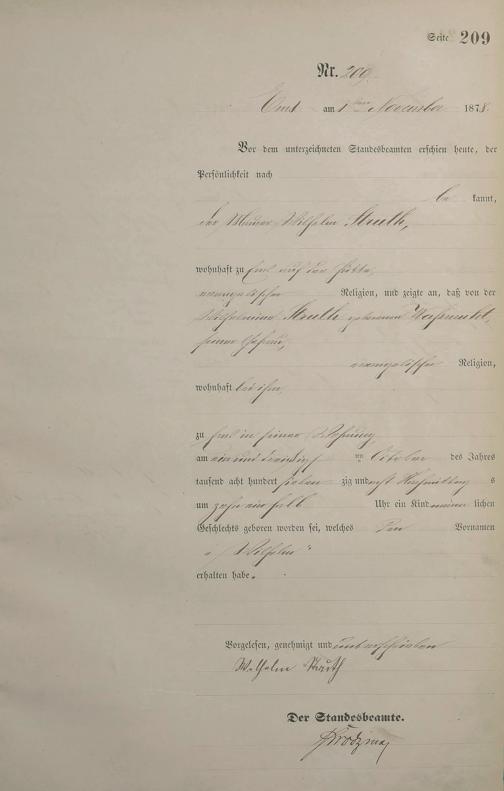 Seite 209
Nr. 209
Ems am 1ten November 1878
Vor dem unterzeichneten Standesbeamten erschien heute, der
Persönlichkeit nach
be kannt,
der Maurer Wilhelm Struth,
wohnhaft zu Ems auf der Hütte,
evangelischer Religion, und zeigte an, daß von der
Wilhelmine Struth geborenen
seiner Ehefrau,
evangelischer Religion,
wohnhaft bei ihm,
zu Ems in seiner Wohnung
am ein und dreißigsten October des Jahres
tausend acht hundert sieben zig und acht Vormittags
um zehn ein halb Uhr ein Kind männ lichen
Geschlechts geboren worden sei, welches den Vornamen
„Wilhelm“
erhalten habe.
Vorgelesen, genehmigt und unterschrieben
Wilhelm Struth
Der Standesbeamte.